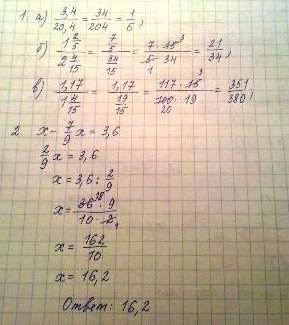 1. а) 3,4/20,4 = 34/204 = 1/6;
б) 1 2/5 / 2 4/15 = 7/5 / 34/15 = 7 · 15 3 / 5 1 · 34 = 21/34;
в) 1,17 / 1 4/15 = 1,17 / 19/15 = 117 · 15 3 / 100 20 · 19 = 351/380;
2. x - 7/9 x = 3,6
2/9 x = 3,6
x = 3,6 : 2/9
x = 36 18 · 9 / 10 · 2 1
x = 162/10
x = 16,2
Ответ: 16,2